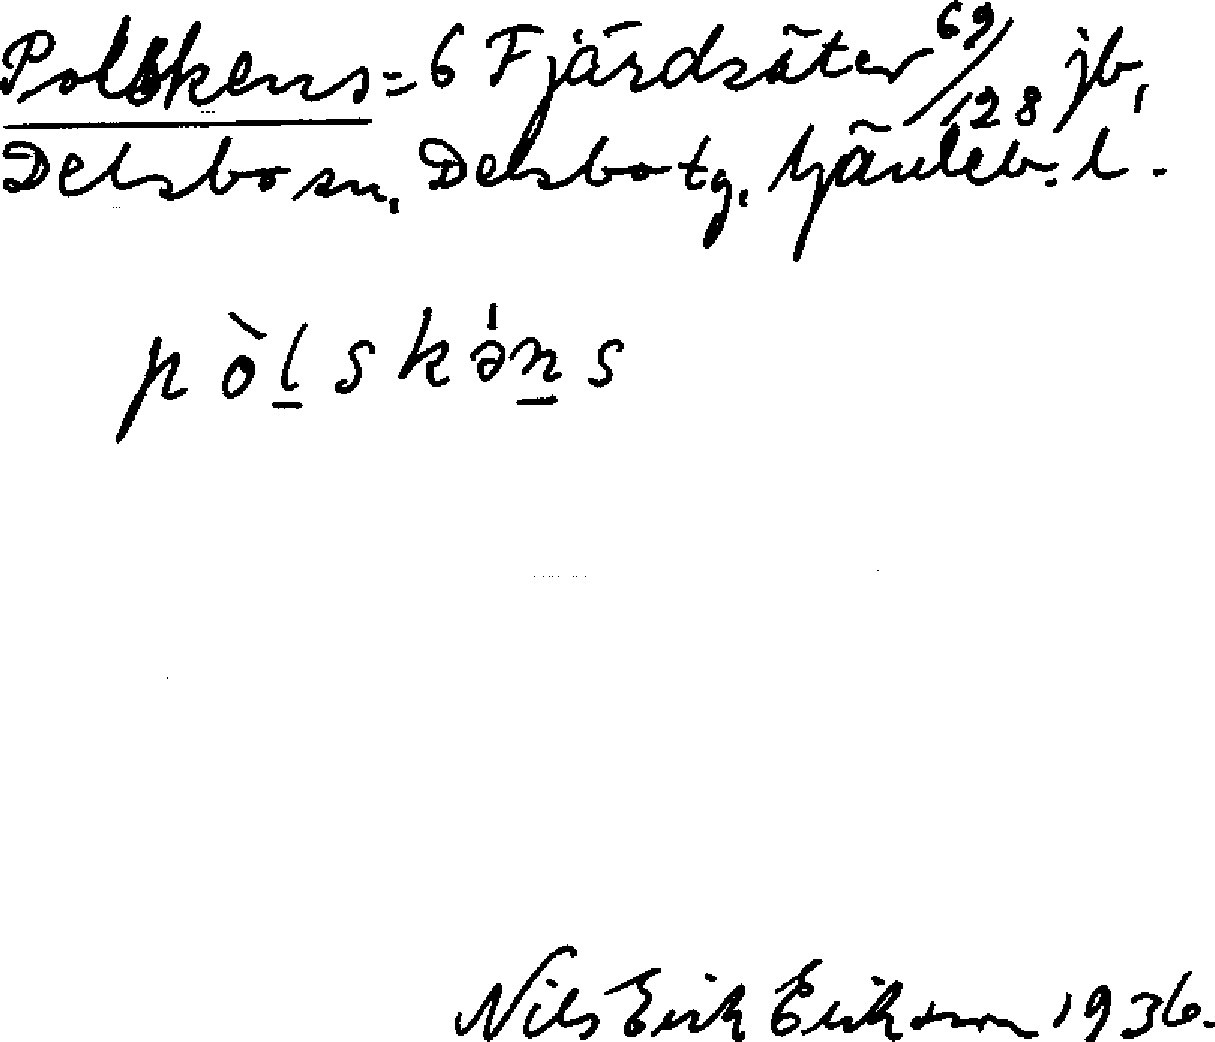 Polskens = 6 Fjärdsäter 69/128 jb,
Delsbo sn, Delsbo tg, Gävleb. l.
pòl̲skə̍n̲s
Nils Erik Eriksson 1936.